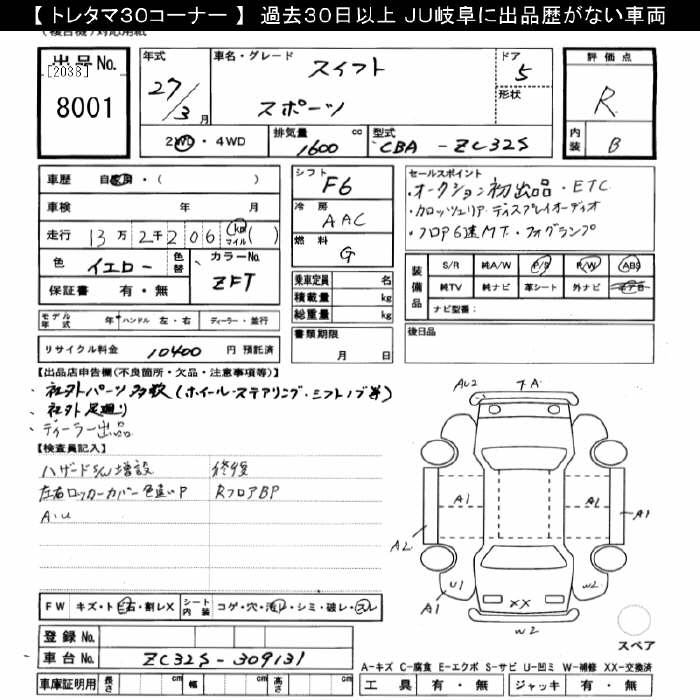 【 トレタマ30コーナー 】 過去30日以上 JU岐阜に出品歴がない車両
出品No.
[2038]
8001
年式
27/3 月
車名・グレード
スイフト
スポーツ
ドア
5
形状
評価点
R
内装
B
2WD・4WD
排気量
1600 cc
型式
CBA - ZC32S
車歴 自家用・( )
車検 年 月
走行 13万2千206 (km マイル)( )
色 イエロー 色替
カラーNo. ZFT
保証書 有・無
シフト
F6
冷房
AAC
燃料
G
乗車定員 名
積載量 kg
総重量 kg
書類期限
月 日
セールスポイント
・オークション初出品・ETC
・カロッツェリア ディスプレイオーディオ
・フロア6速MT・フォグランプ
装備品
S/R 純A/W P/S P/W ABS
純TV 純ナビ 革シート 外ナビ エアB
ナビ型番:
後日品
モデル年式 年 ハンドル 左・右 ディーラー・並行
リサイクル料金 10400 円 預託済
【出品店申告欄(不良箇所・欠品・注意事項等)】
、社外パーツ多数(ホイール・ステアリング・シフトノブ等)
、社外足廻り
、ディーラー出品
【検査員記入】
ハザードS/W増設 修復
左右ロッカーカバー色違いP RフロアBP
A・U
FW キズ・ト ビ石・割レX シート内装 コゲ・穴・汚レ・シミ・破レ・スレ
登録No.
車台No. ZC32S-309131
車庫証明用 長さ cm 幅 cm 高さ cm
AU2 7A
A1 A1
A2 A1
U1 W2
A1 XX
W2
スペア
A-キズ C-腐食 E-エクボ S-サビ U-凹ミ W-補修 XX-交換済
工具 有・無 ジャッキ 有・無